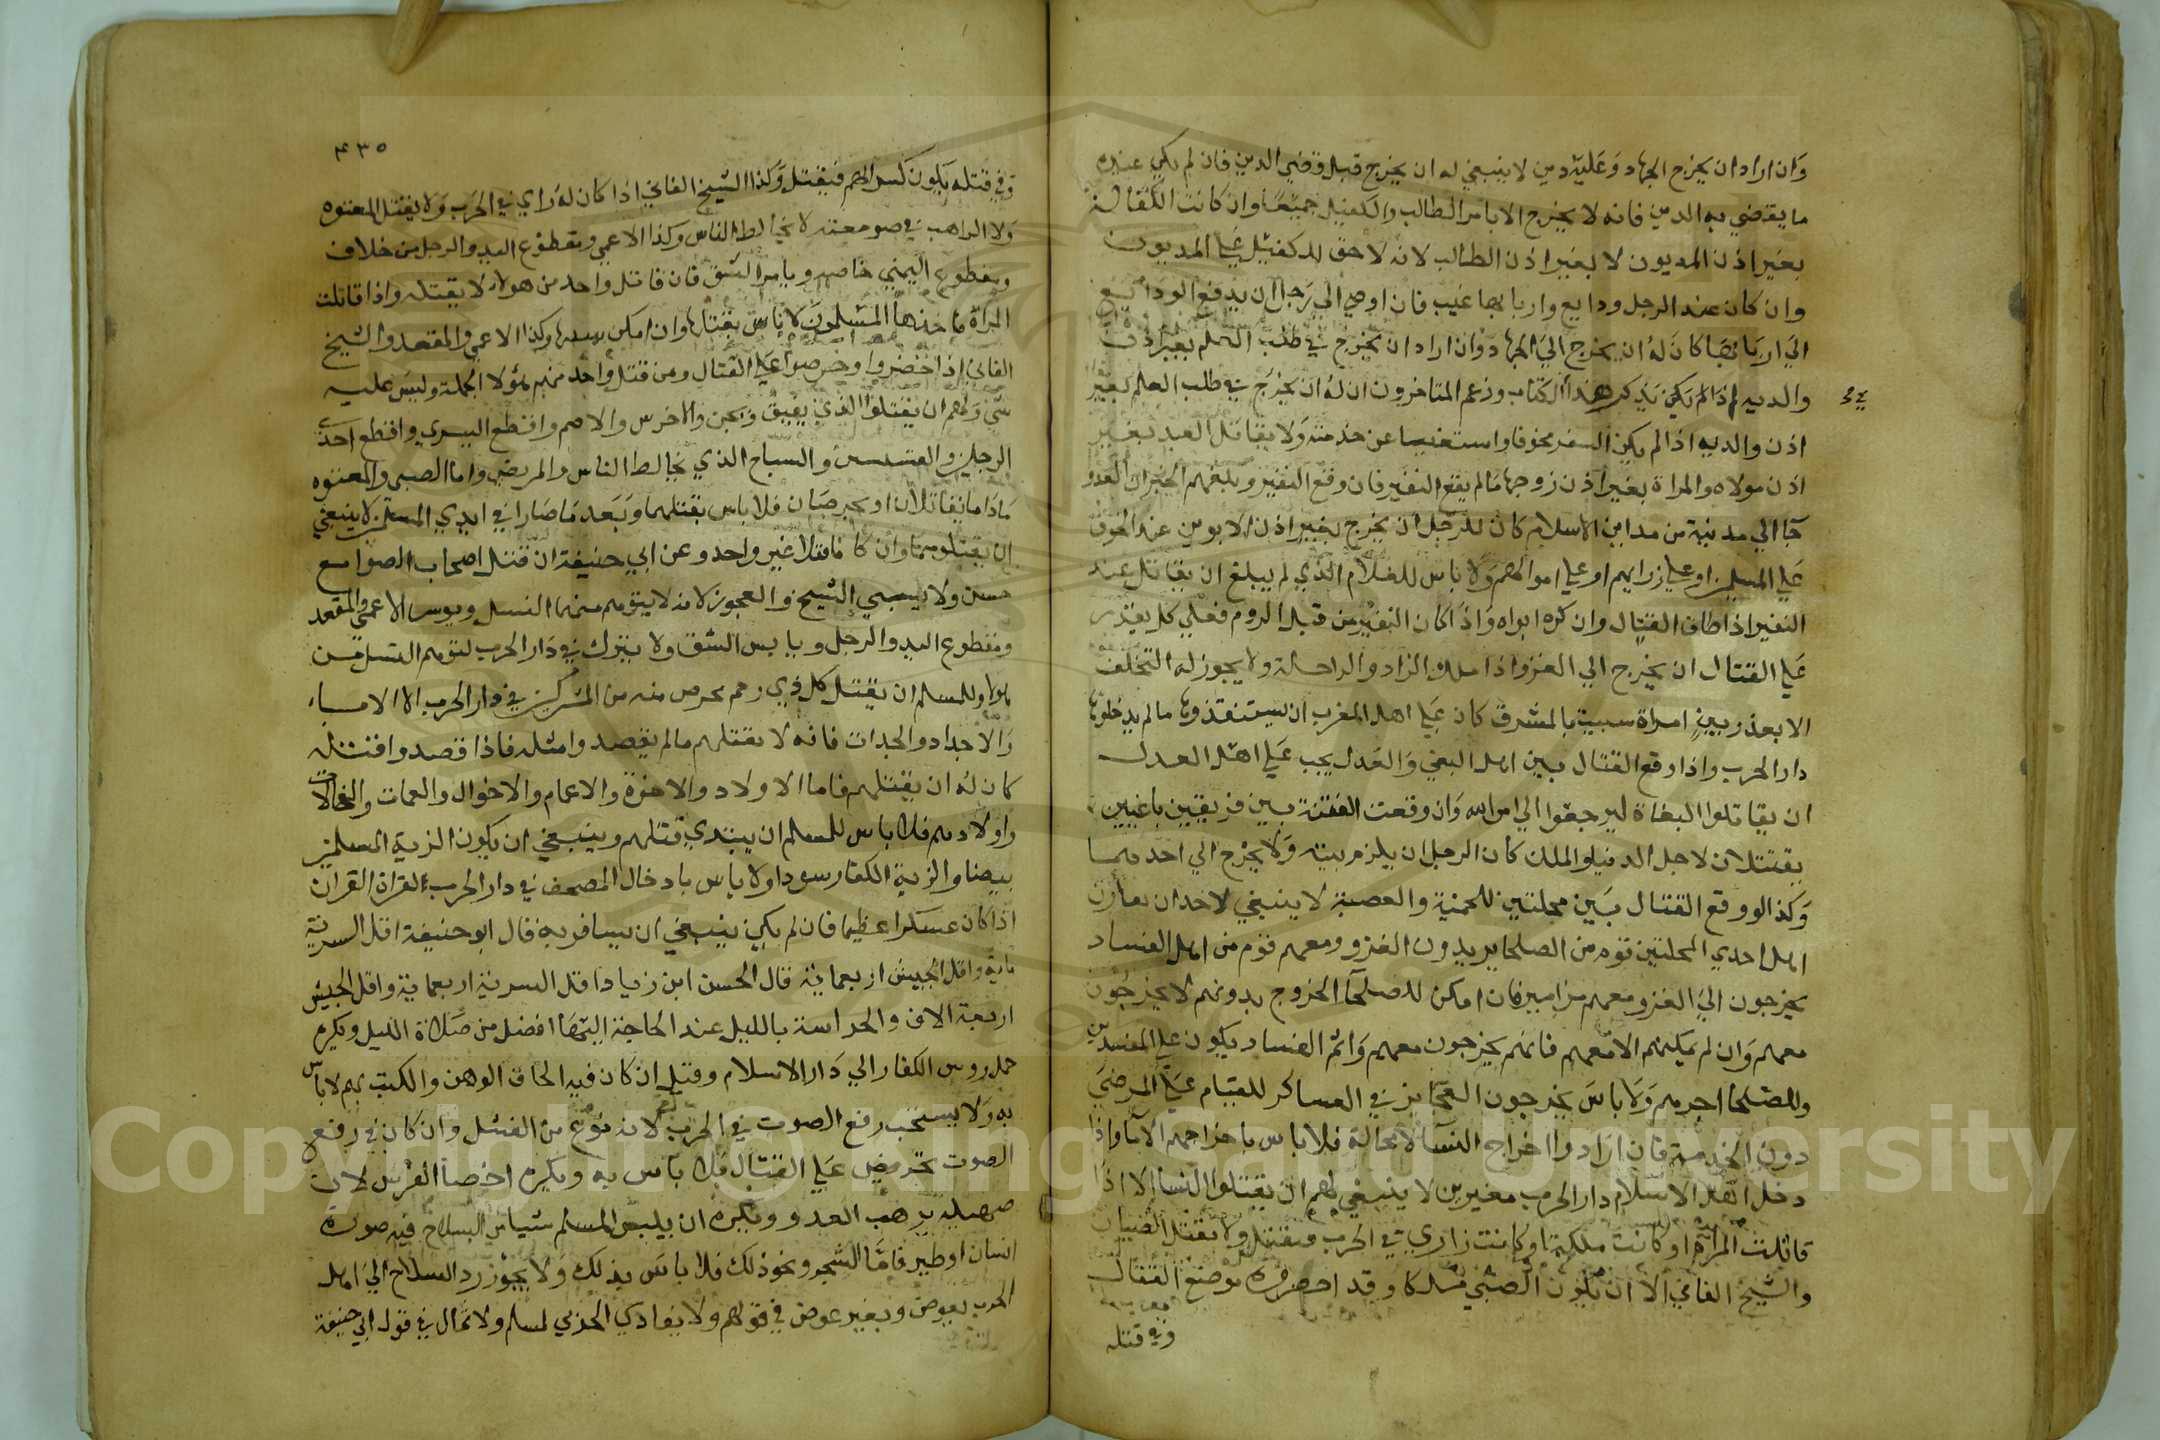 وان اراد ان يخرج الجهاد وعليه دين لا ينبغي له ان يخرج قبل وقضي الدين فان لم يكن عنده
ما يقضي به الدين فانه لا يخرج الا بامر الطالب والكفيل جميعا وان كانت الكفالة
بغير اذن المديون لا بغير اذن الطالب لانه لا حق للكفيل علي المديون
وان كان عند الرجل ودايع واربابها غيب فان اوصي الي رجل ان يدفع الودايع
الي اربابها كان له ان يخرج الي الجهاد وان اراد ان يخرج في طلب العلم بغير اذن
والديه اذا لم يكن يذكر هذا الكتاب وزعم المتاخرون ان له ان يخرج في طلب العلم بغير
اذن والديه اذا لم يكن السفر مخوفا واستغنيا عن خدمته ولا يقاتل العبد بغير
اذن مولاه والمراة بغير اذن زوجها ما لم يقع النفير فان وقع النفير وبلغهم الخبر ان العدو
جا الي مدينة من مداين الاسلام كان للرجل ان يخرج بغير اذن الابوين عند الخوف
علي المسلمين او علي ذراريهم او علي اموالهم ولا باس للغلام الذي لم يبلغ ان يقاتل عند
النفير اذا طاق القتال وان كره ابواه واذا كان النفير من قبل الروم فعلي كل يقدر
علي القتال ان يخرج الي الغزو اذا ملك الزاد والراحلة ولا يجوز له التخلف
الا بعذر بين امراة سبية بالمشرق كان علي اهل المغرب ان يستنقذوها ما لم يدخلوها
دار الحرب واذا وقع القتال بين اهل البغي والعدل يجب علي اهل العدل
ان يقاتلوا البغاة ليرجعوا الي امر الله وان وقعت الفتنة بين فريقين باغيين
يقتتلان لاجل الدنيا والملك كان الرجل ان يلزم بيته ولا يخرج الي احد منهما
وكذا لو وقع القتال بين محلتين للحمية والعصبة لا ينبغي لاحد ان يعاون
اهل احدي المحلتين قوم من الصلحا يريدون الغزو ومعهم قوم من اهل الفساد
يخرجون الي الغزو معهم مزامير فان امكن للصلحا الخروج بدونهم لا يخرجون
معهم وان لم يمكنهم الا معهم فانهم يخرجون معهم واثم الفساد يكون علي المفسدين
وللصلحا اجرهم ولا باس يخرجون العجايز في العساكر للقيام علي المرضي
دون الخدمة فان ارادوا اخراج النسا لا محالة فلا باس باخراجهم الاماء واذا
دخل اهل الاسلام دار الحرب مغيرين لا ينبغي لهم ان يقتلوا النسا الا اذا
قاتلت المراة او كانت ملكة او كانت راي في الحرب فتقتل ولا يقتل الصبيان
والشيخ الفاني الا ان يكون الصبي ملكا وقد احضروه موضع القتال
وفي قتله
٤٣٥
وفي قتله يكون كسر لهم فيقتل وكذا الشيخ الفاني اذا كان له راي في الحرب ولا يقتل المعتوه
ولا الراهب في صومعته لا يخالط الناس وكذا الاعمي ومقطوع اليد والرجل من خلاف
ومقطوع اليمني خاصة ويابس الشق فان قاتل واحد من هولاء لا يقتله واذا قاتلت
المراة فاخذها المسلمون لا باس بقتلها وان امكن سبيها وكذا الاعمي والمقعد والشيخ
الفاني اذا حضروا وحرصوا علي القتال ومن قتل واحد منهم هولا الجملة وليس عليه
شي ولهم ان يقتلوا الذي يفيق ويجن والاخرس والاصم واقطع اليسري واقطع احدي
الرجلين والقسيس والسياح الذي يخالط الناس والمريض واما الصبي والمعتوه
ما داما يقاتلان او يحرضان فلا باس بقتلهما وبعد ما صارا في ايدي المسلمين لا ينبغي
ان يقتلوهما وان كانا قتلا غير واحد وعن ابي حنيفة ان قتل اصحاب الصوامع
حسن ولا يسبي الشيخ والعجوز لانه لا يتوهم منهما النسل ويوسر الاعمي والمقعد
ومقطوع اليد والرجل ويابس الشق ولا يترك في دار الحرب لتوهم النسل من
هولا وللمسلم ان يقتل كل ذي رحم محرم منه من المشركين في دار الحرب الا الاباء
والاجداد والجدات فانه لا يقتلهم ما لم يقصدوا مثله فاذا قصدوا قتله
كان له ان يقتلهم فاما الاولاد والاخوة والاعمام والاخوال والعمات والخالات
واولادهم فلا باس للمسلم ان يبتدي قتلهم وينبغي ان يكون الزية المسلمين
بيضا والزية الكفار سودا ولا باس بادخال المصحف في دار الحرب لقراة القران
اذا كان عسكرا عظيما فان لم يكن ينبغي ان يسافر به قال ابو حنيفة اقل السرية
ماية واقل الجيش اربعماية قال الحسن ابن زياد اقل السرية اربعماية واقل الجيش
اربعة الاف والحراسة بالليل عند الحاجة اليها افضل من صلاة الليل ويكره
حمل روس الكفار الي دار الاسلام وقيل ان كان فيه الحاق الوهن والكبت بهم لا باس
به ولا يستحب رفع الصوت في الحرب لانه نوع من الفشل وان كان في رفع
الصوت تحريض علي القتال فلا باس به ويكره اخصا الفرس لان
صهيله يرهب العدو ويكره ان يلبس المسلم شيا من السلاح فيه صورة
انسان او طير فاما الشجر ونحو ذلك فلا باس بذلك ولا يجوز رد السلاح الي اهل
الحرب بعوض وبغير عوض في قولهم ولا يفادي الحربي لمسلم ولا بمال في قول ابي حنيفة
Copyright © King Saud University